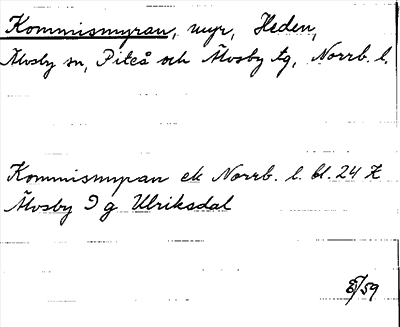 Kommismyran, myr, Heden,
Älvsby sn, Piteå och Älvsby tg, Norrb. l.
Kommismyran ek Norrb. l. bl. 24 K
Älvsby 9 g Ulriksdal
/59